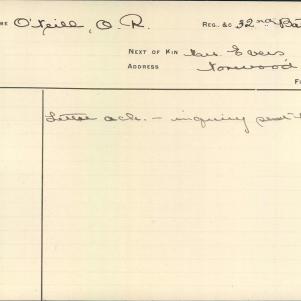 ME O'Neill, O. R. REG. &C 32nd Ba
NEXT OF KIN Mrs Evers
ADDRESS Norwood
F
Letter ack. - inquiry sent